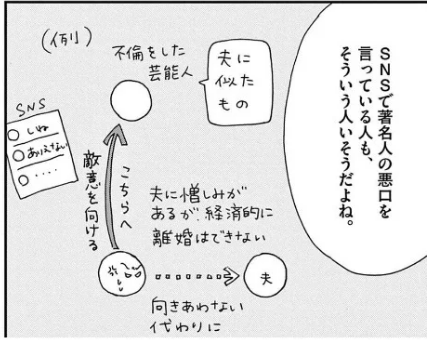 SNSで著名人の悪口を
言っている人も、
そういう人いそうだよね。
(例)
不倫をした
芸能人
夫に
似た
もの
SNS
しね
ありえない
・・・・
こちらへ
敵意を向ける
夫に憎しみが
あるが、経済的に
離婚はできない
夫
向きあわない
代わりに